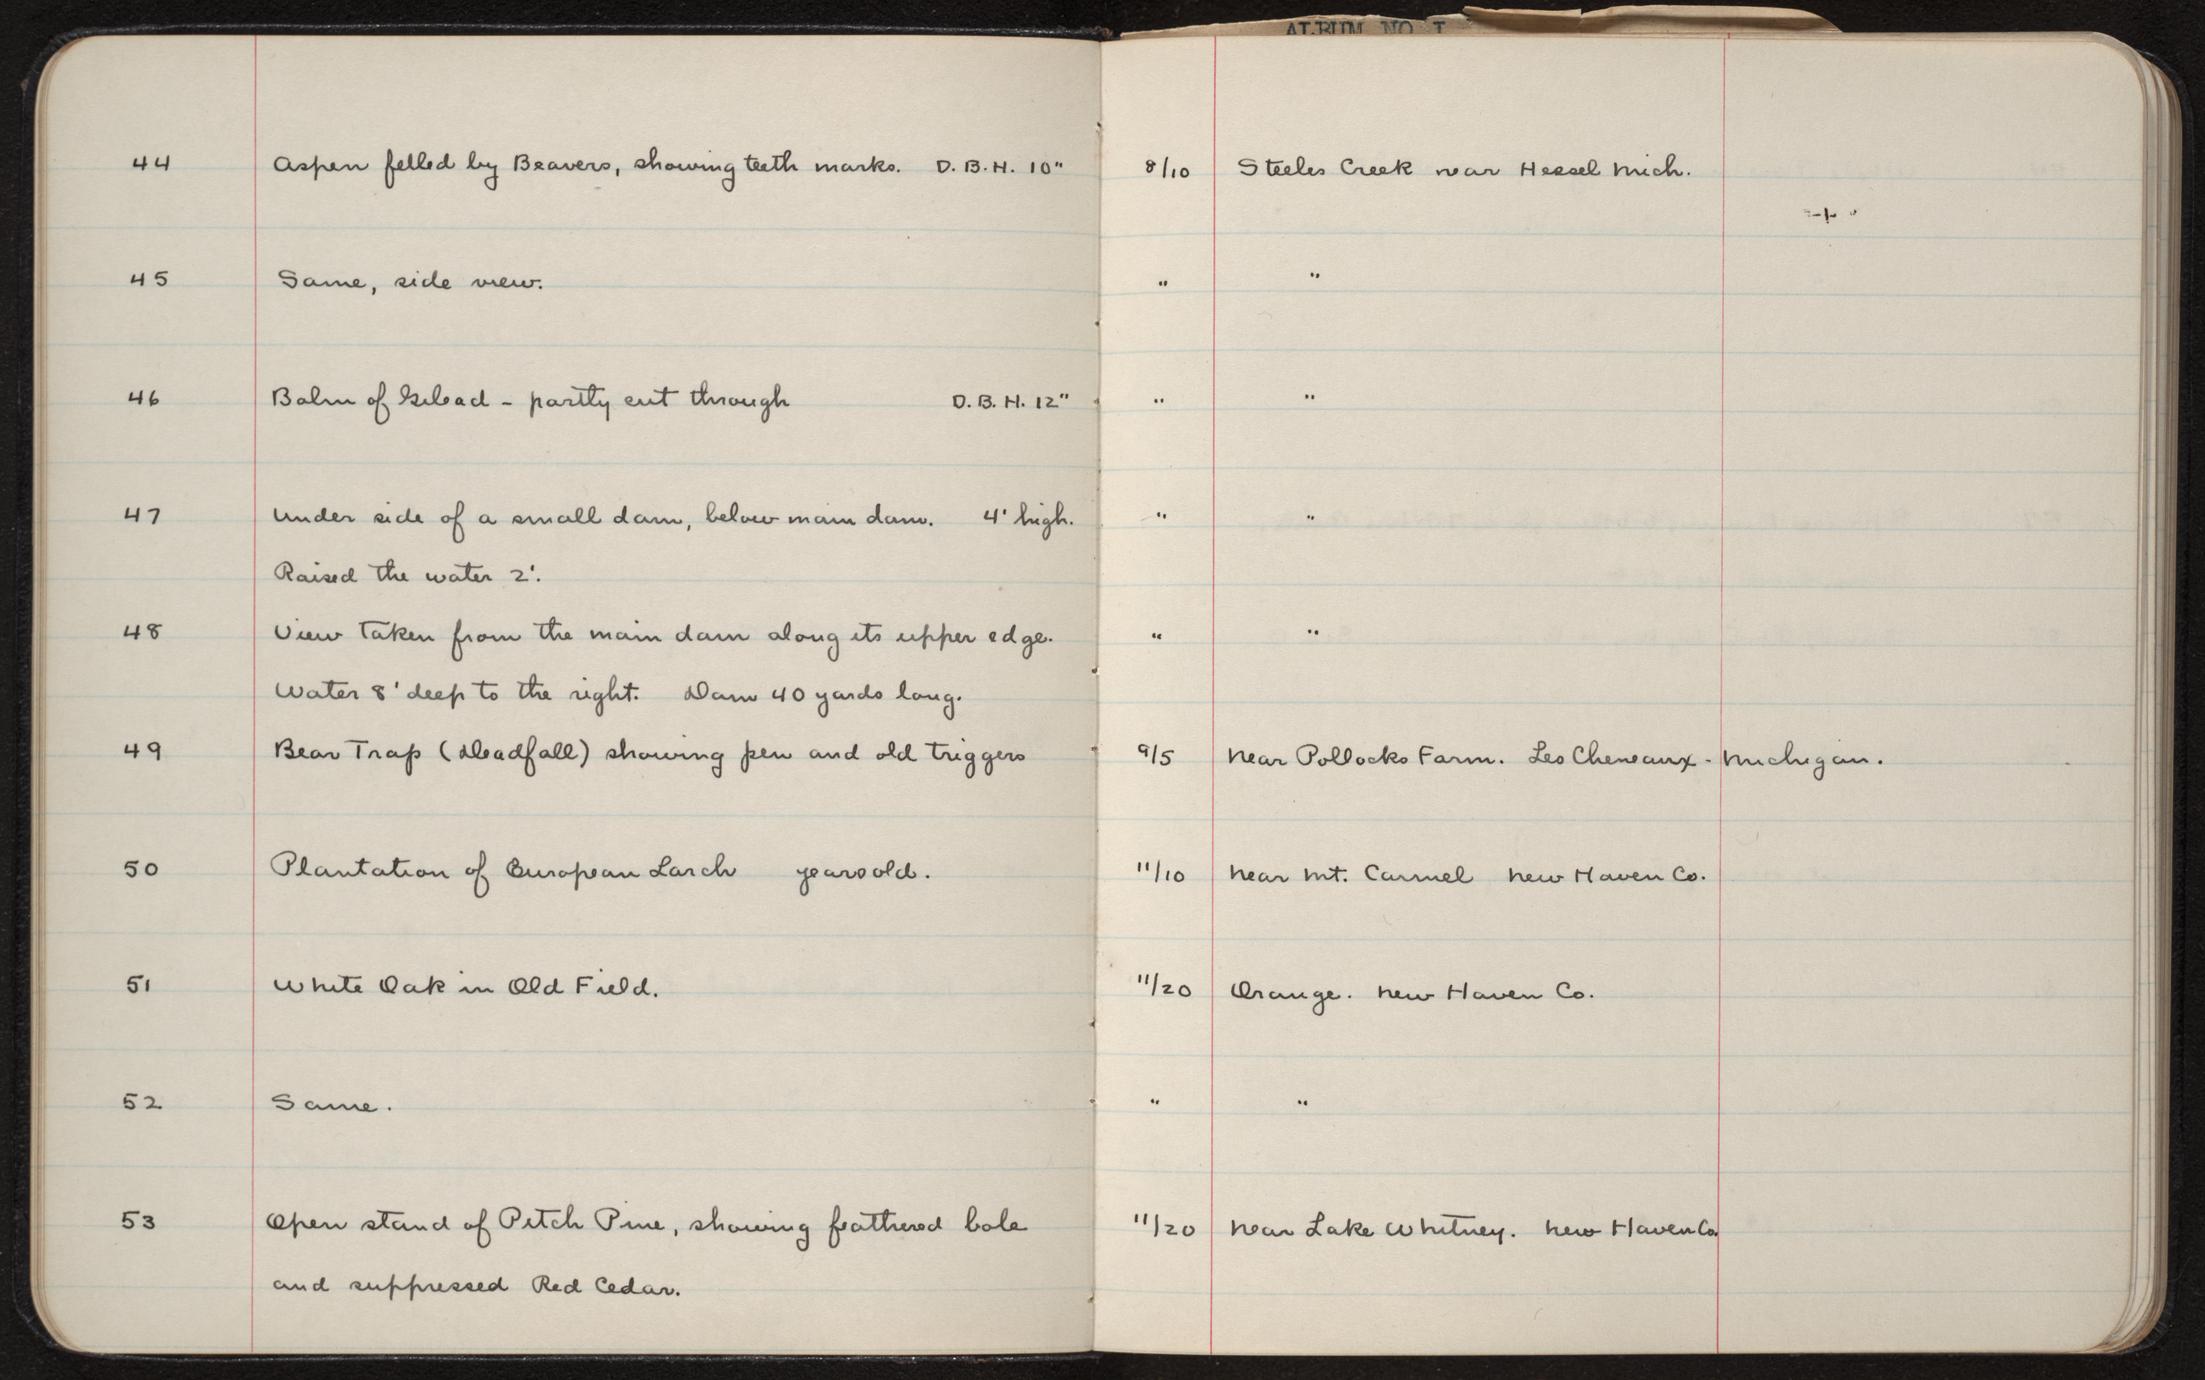 ALBUM NO I
44 Aspen felled by Beavers, showing teeth marks. D.B.H. 10" 8/10 Steeles Creek near Hessel Mich.
45 Same, side view. " "
46 Balm of Gilead - partly cut through D.B.H. 12" " "
47 Under side of a small dam, below main dam. 4' high. " "
Raised the water 2'.
48 View taken from the main dam along its upper edge. " "
Water 8' deep to the right. Dam 40 yards long.
49 Bear Trap (Deadfall) showing pen and old triggers 9/5 Near Pollocks Farm. Les Cheneaux - Michigan.
50 Plantation of European Larch years old. 11/10 Near Mt. Carmel New Haven Co.
51 White Oak in Old Field. 11/20 Orange. New Haven Co.
52 Same. " "
53 Open stand of Pitch Pine, showing feathered bole 11/20 Near Lake Whitney. New Haven Co.
and suppressed Red Cedar.